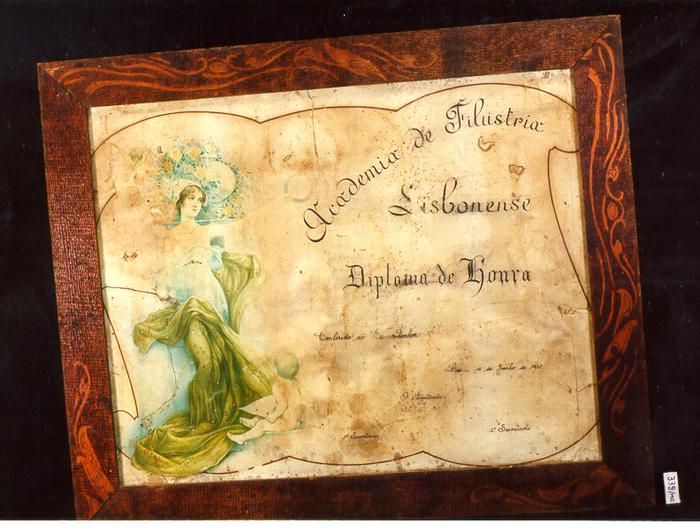 Academia de Filustria
Lisbonense
Diploma de Honra
Conferido ao Senhor
de Junho de 1921
O Presidente
1º Secretario
2º Secretario
339